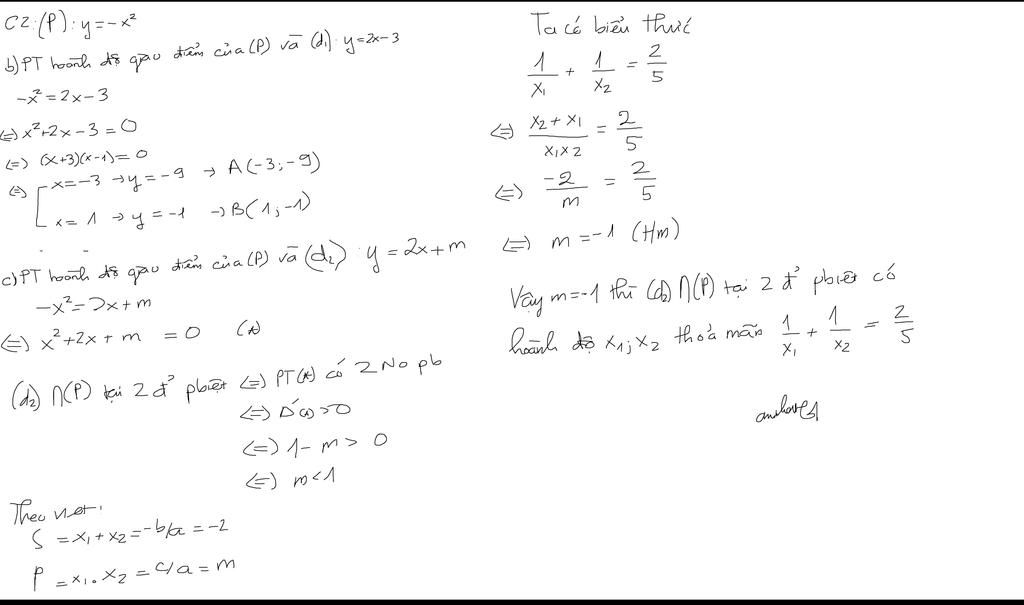 C2: (P): y = -x²
b) PT hoành độ giao điểm của (P) và (d₁): y = 2x - 3
-x² = 2x - 3
<=> x² + 2x - 3 = 0
<=> (x+3)(x-1) = 0
<=> [ x = -3 → y = -9 → A(-3; -9)
x = 1 → y = -1 → B(1; -1)
c) PT hoành độ giao điểm của (P) và (d₂): y = 2x + m
-x² = 2x + m
<=> x² + 2x + m = 0 (*)
(d₂) ∩ (P) tại 2 đ' pbiệt <=> PT(*) có 2 No pb
<=> Δ'(*) > 0
<=> 1 - m > 0
<=> m < 1
Theo viet:
S = x₁ + x₂ = -b/a = -2
P = x₁ . x₂ = c/a = m
Ta có biểu thức
1/x₁ + 1/x₂ = 2/5
<=> (x₂ + x₁)/(x₁x₂) = 2/5
<=> -2/m = 2/5
<=> m = -1 (t/m)
Vậy m = -1 thì (d₂) ∩ (P) tại 2 đ' pbiệt có
hoành độ x₁; x₂ thỏa mãn 1/x₁ + 1/x₂ = 2/5